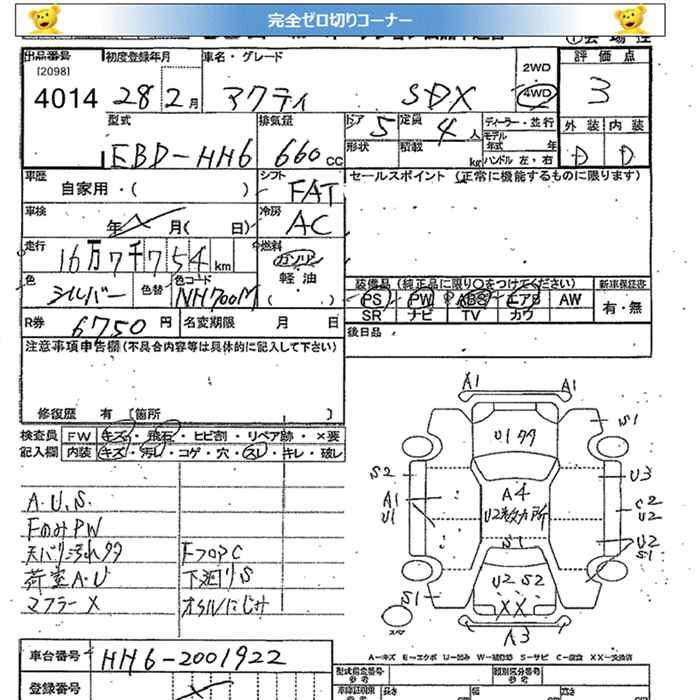 完全ゼロ切りコーナー
出品番号 初度登録年月 車名・グレード 2WD 評価点
[2098]
4014 28 2月 アクティ SDX 4WD 3
型式 排気量 ドア 5 定員 4人 ディーラー・並行 外装 内装
モデル年式 年
EBD-HH6 660cc 形状 積載 kg ハンドル 左・右 D D
車歴 シフト セールスポイント (正常に機能するものに限ります)
自家用・( ) FAT
車検 冷房
年 月( 日) AC
走行 燃料
16万7千754km ガソリン
色 色替 色コード 軽油 装備品(純正品に限り○をつけてください) 新車保証書
シルバー NH700M ( ) PS PW ABS エアB AW 有・無
SR ナビ TV カワ
R券 6750円 名変期限 月 日 後日品
注意事項申告欄(不具合内容等は具体的に記入して下さい)
修復歴 有 [箇所 ]
検査員 FW キズ・飛石・ヒビ割・リペア跡・×要
記入欄 内装 キズ・汚レ・コゲ・穴・スレ・キレ・破レ
A.U.S.
FのみPW
天バリ汚れタタ FフロアC
荷室A.U 下廻りS
マフラーX オイルにじみ
A1 A1
U1タタ S1
S2 U3
A1 A4 C2
U1 U2数カ所 U2
S1 U2
S1
U2 S2
S1 XX
スペア A3
A-キズ E-エクボ U-凹み W-補修跡 S-サビ C-腐食 XX-交換済
車台番号 HH6-2001922
型式指定番号 類別区分番号
参考 参考
登録番号
長さ cm 幅 cm 高さ